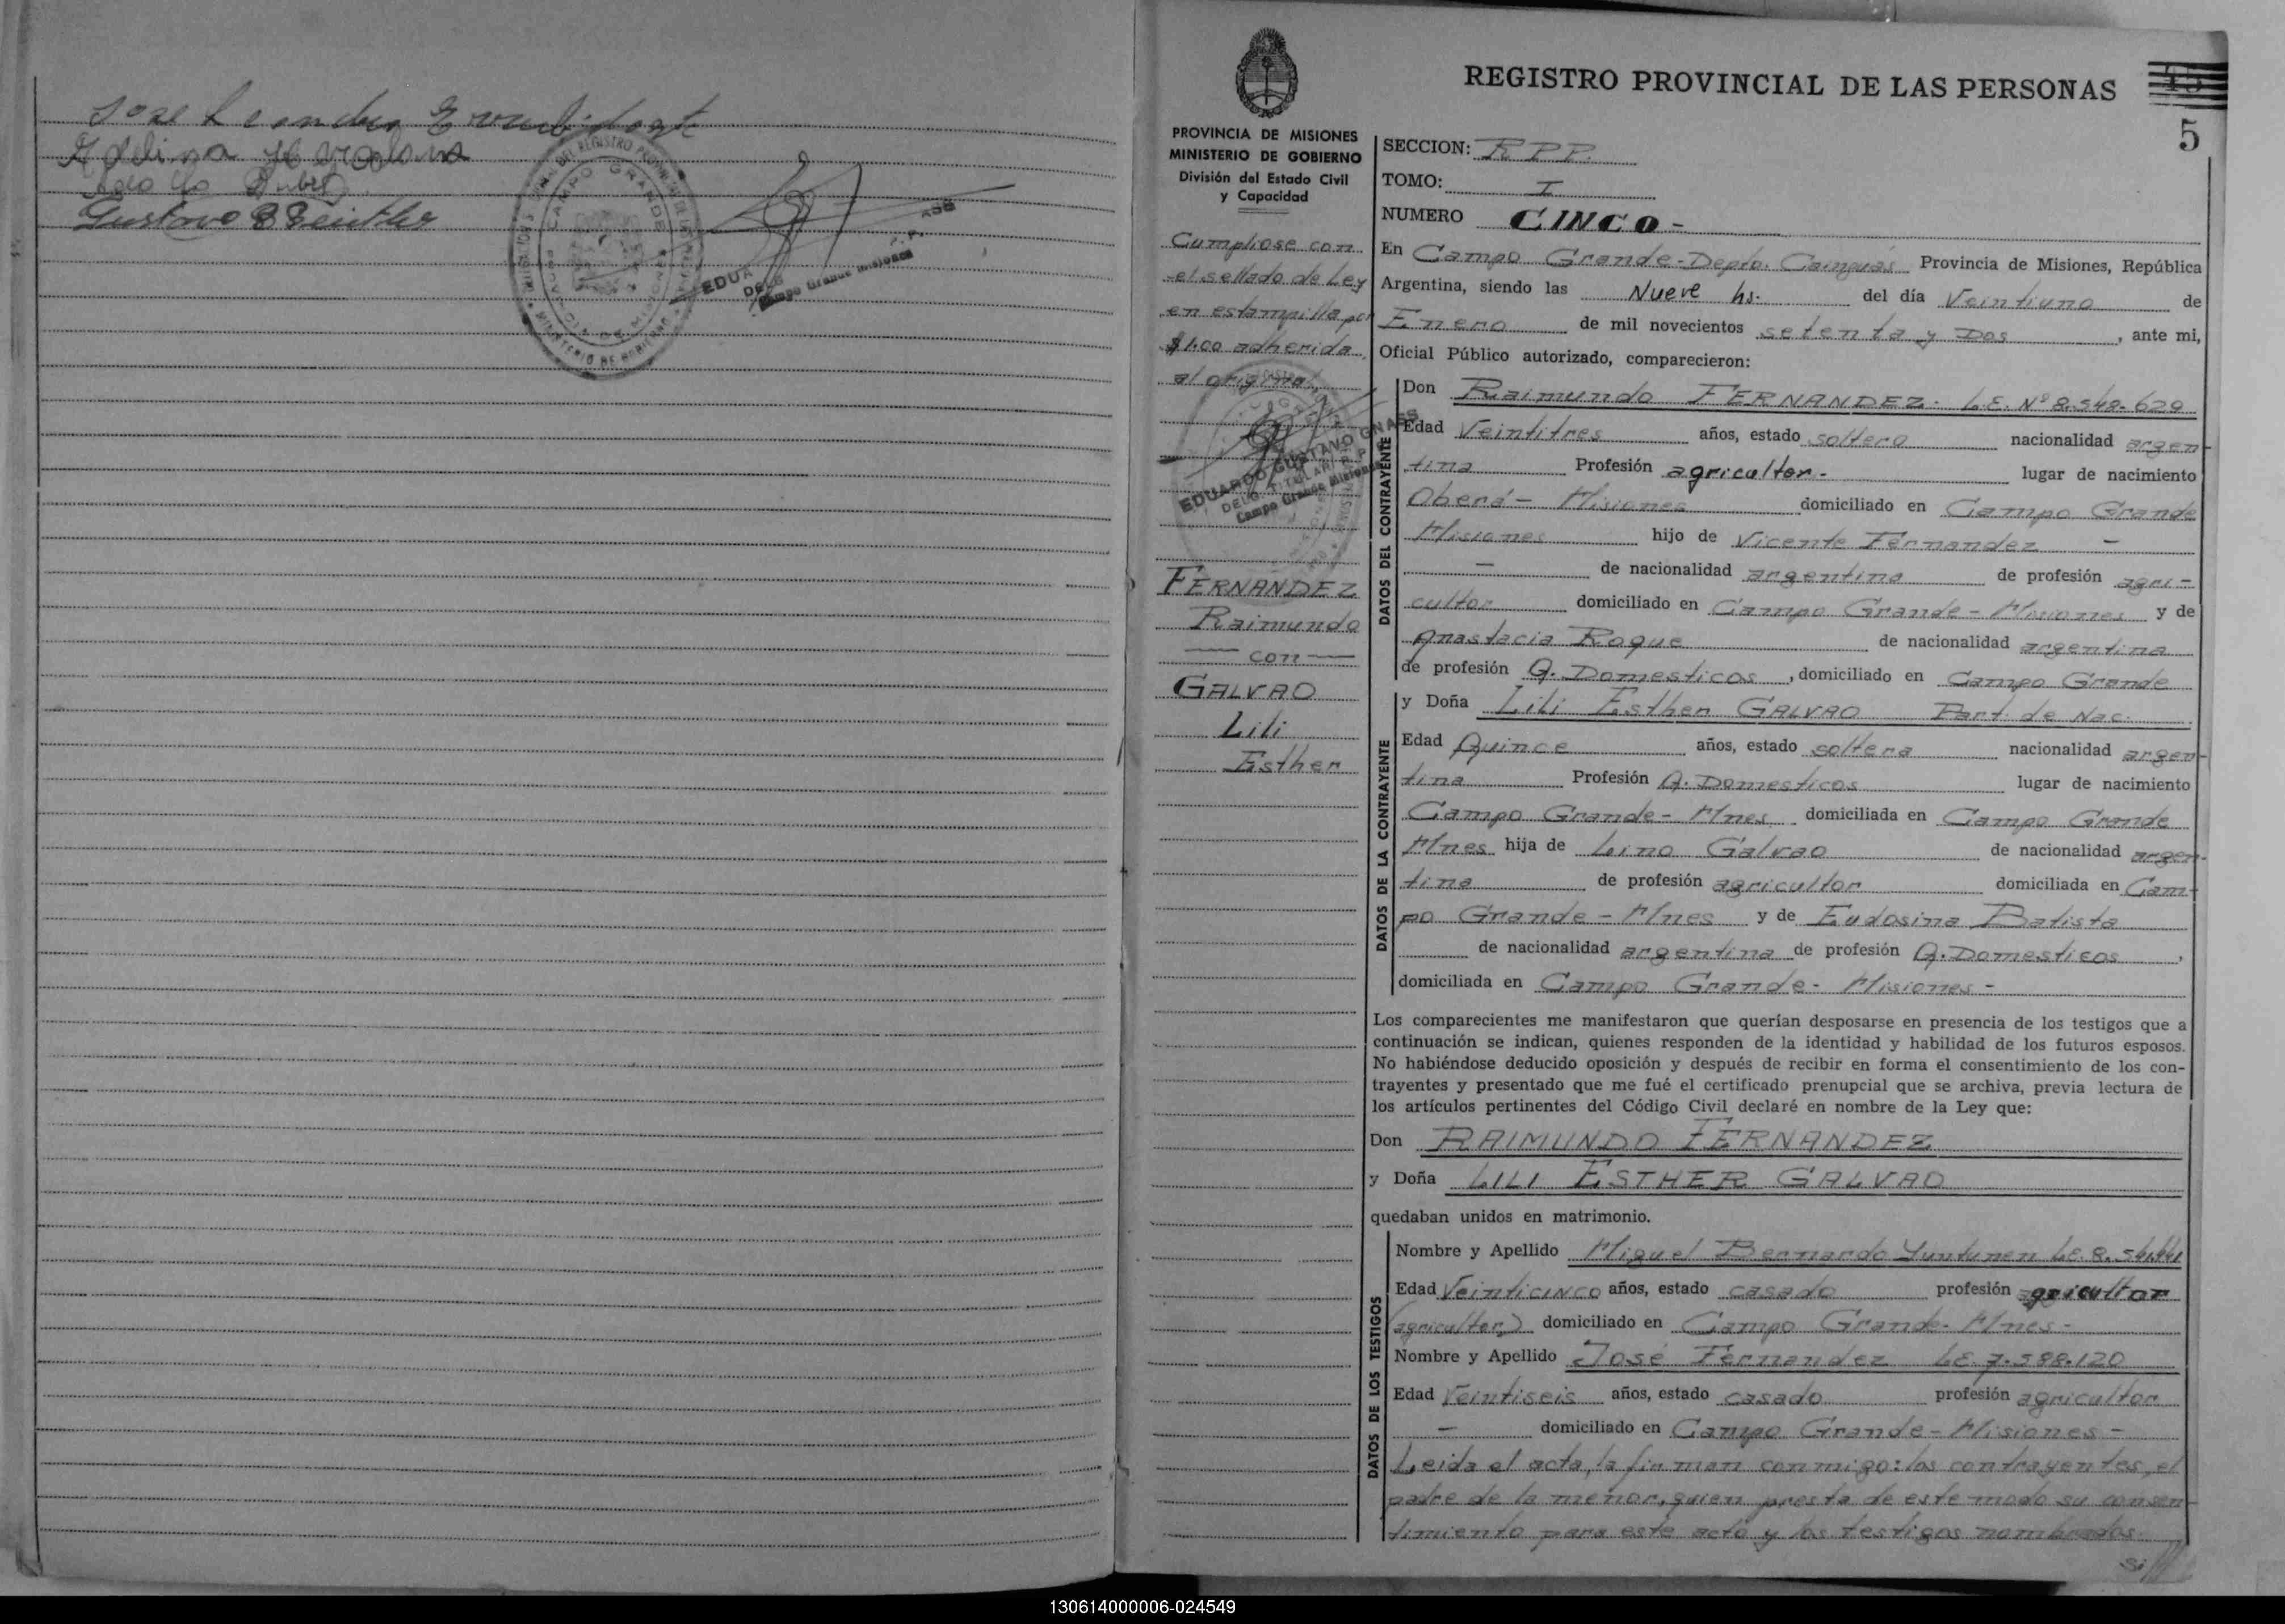 Gustavo
EDUA
Campo Grande Misiones
REGISTRO PROVINCIAL DE LAS PERSONAS
5
PROVINCIA DE MISIONES
MINISTERIO DE GOBIERNO
División del Estado Civil
y Capacidad
Cumpliose con
el sellado de Ley
en estampilla por
$1.00 adherida
al original.
EDUARDO GUSTAVO GNASS
DELG. TITULAR R.P.P.
Campo Grande Misiones
FERNANDEZ
Raimundo
— con —
GALVAO
Lili
Esther
SECCION: R P P.
TOMO: I
NUMERO CINCO -
En Campo Grande - Depto. Cainguás Provincia de Misiones, República
Argentina, siendo las Nueve hs. del día Veintiuno de
Enero de mil novecientos setenta y Dos, ante mi,
Oficial Público autorizado, comparecieron:
DATOS DEL CONTRAYENTE
Don Raimundo FERNANDEZ. L.E. Nº 8.548.629
Edad Veintitres años, estado soltero nacionalidad argen-
tina Profesión agricultor.- lugar de nacimiento
Oberá - Misiones domiciliado en Campo Grande
Misiones hijo de Vicente Fernandez -
- de nacionalidad argentina de profesión agri-
cultor domiciliado en Campo Grande - Misiones y de
Anastacia Roque de nacionalidad argentina
de profesión Q. Domesticos, domiciliado en Campo Grande
DATOS DE LA CONTRAYENTE
y Doña Lili Esther GALVAO Part. de Nac.
Edad Quince años, estado soltera nacionalidad argen-
tina Profesión Q. Domesticos lugar de nacimiento
Campo Grande - Mnes domiciliada en Campo Grande
Mnes hija de Lino Galvao de nacionalidad argen-
tina de profesión agricultor domiciliada en Cam-
po Grande - Mnes y de Eudosina Batista
de nacionalidad argentina de profesión Q. Domesticos,
domiciliada en Campo Grande - Misiones -
Los comparecientes me manifestaron que querían desposarse en presencia de los testigos que a
continuación se indican, quienes responden de la identidad y habilidad de los futuros esposos.
No habiéndose deducido oposición y después de recibir en forma el consentimiento de los con-
trayentes y presentado que me fué el certificado prenupcial que se archiva, previa lectura de
los artículos pertinentes del Código Civil declaré en nombre de la Ley que:
Don RAIMUNDO FERNANDEZ
y Doña LILI ESTHER GALVAO
quedaban unidos en matrimonio.
DATOS DE LOS TESTIGOS
Nombre y Apellido Miguel Bernardo Yuntunen L.E. 8.
Edad Veinticinco años, estado casado profesión agricultor
(agricultor) domiciliado en Campo Grande - Mnes -
Nombre y Apellido José Fernandez L.E. 7.598.120
Edad Veintiseis años, estado casado profesión agricultor
- domiciliado en Campo Grande - Misiones -
Leida el acta, la firman conmigo: los contrayentes, el
padre de la menor, quien presta de este modo su consen-
timiento para este acto y los testigos nombrados.
130614000006-024549